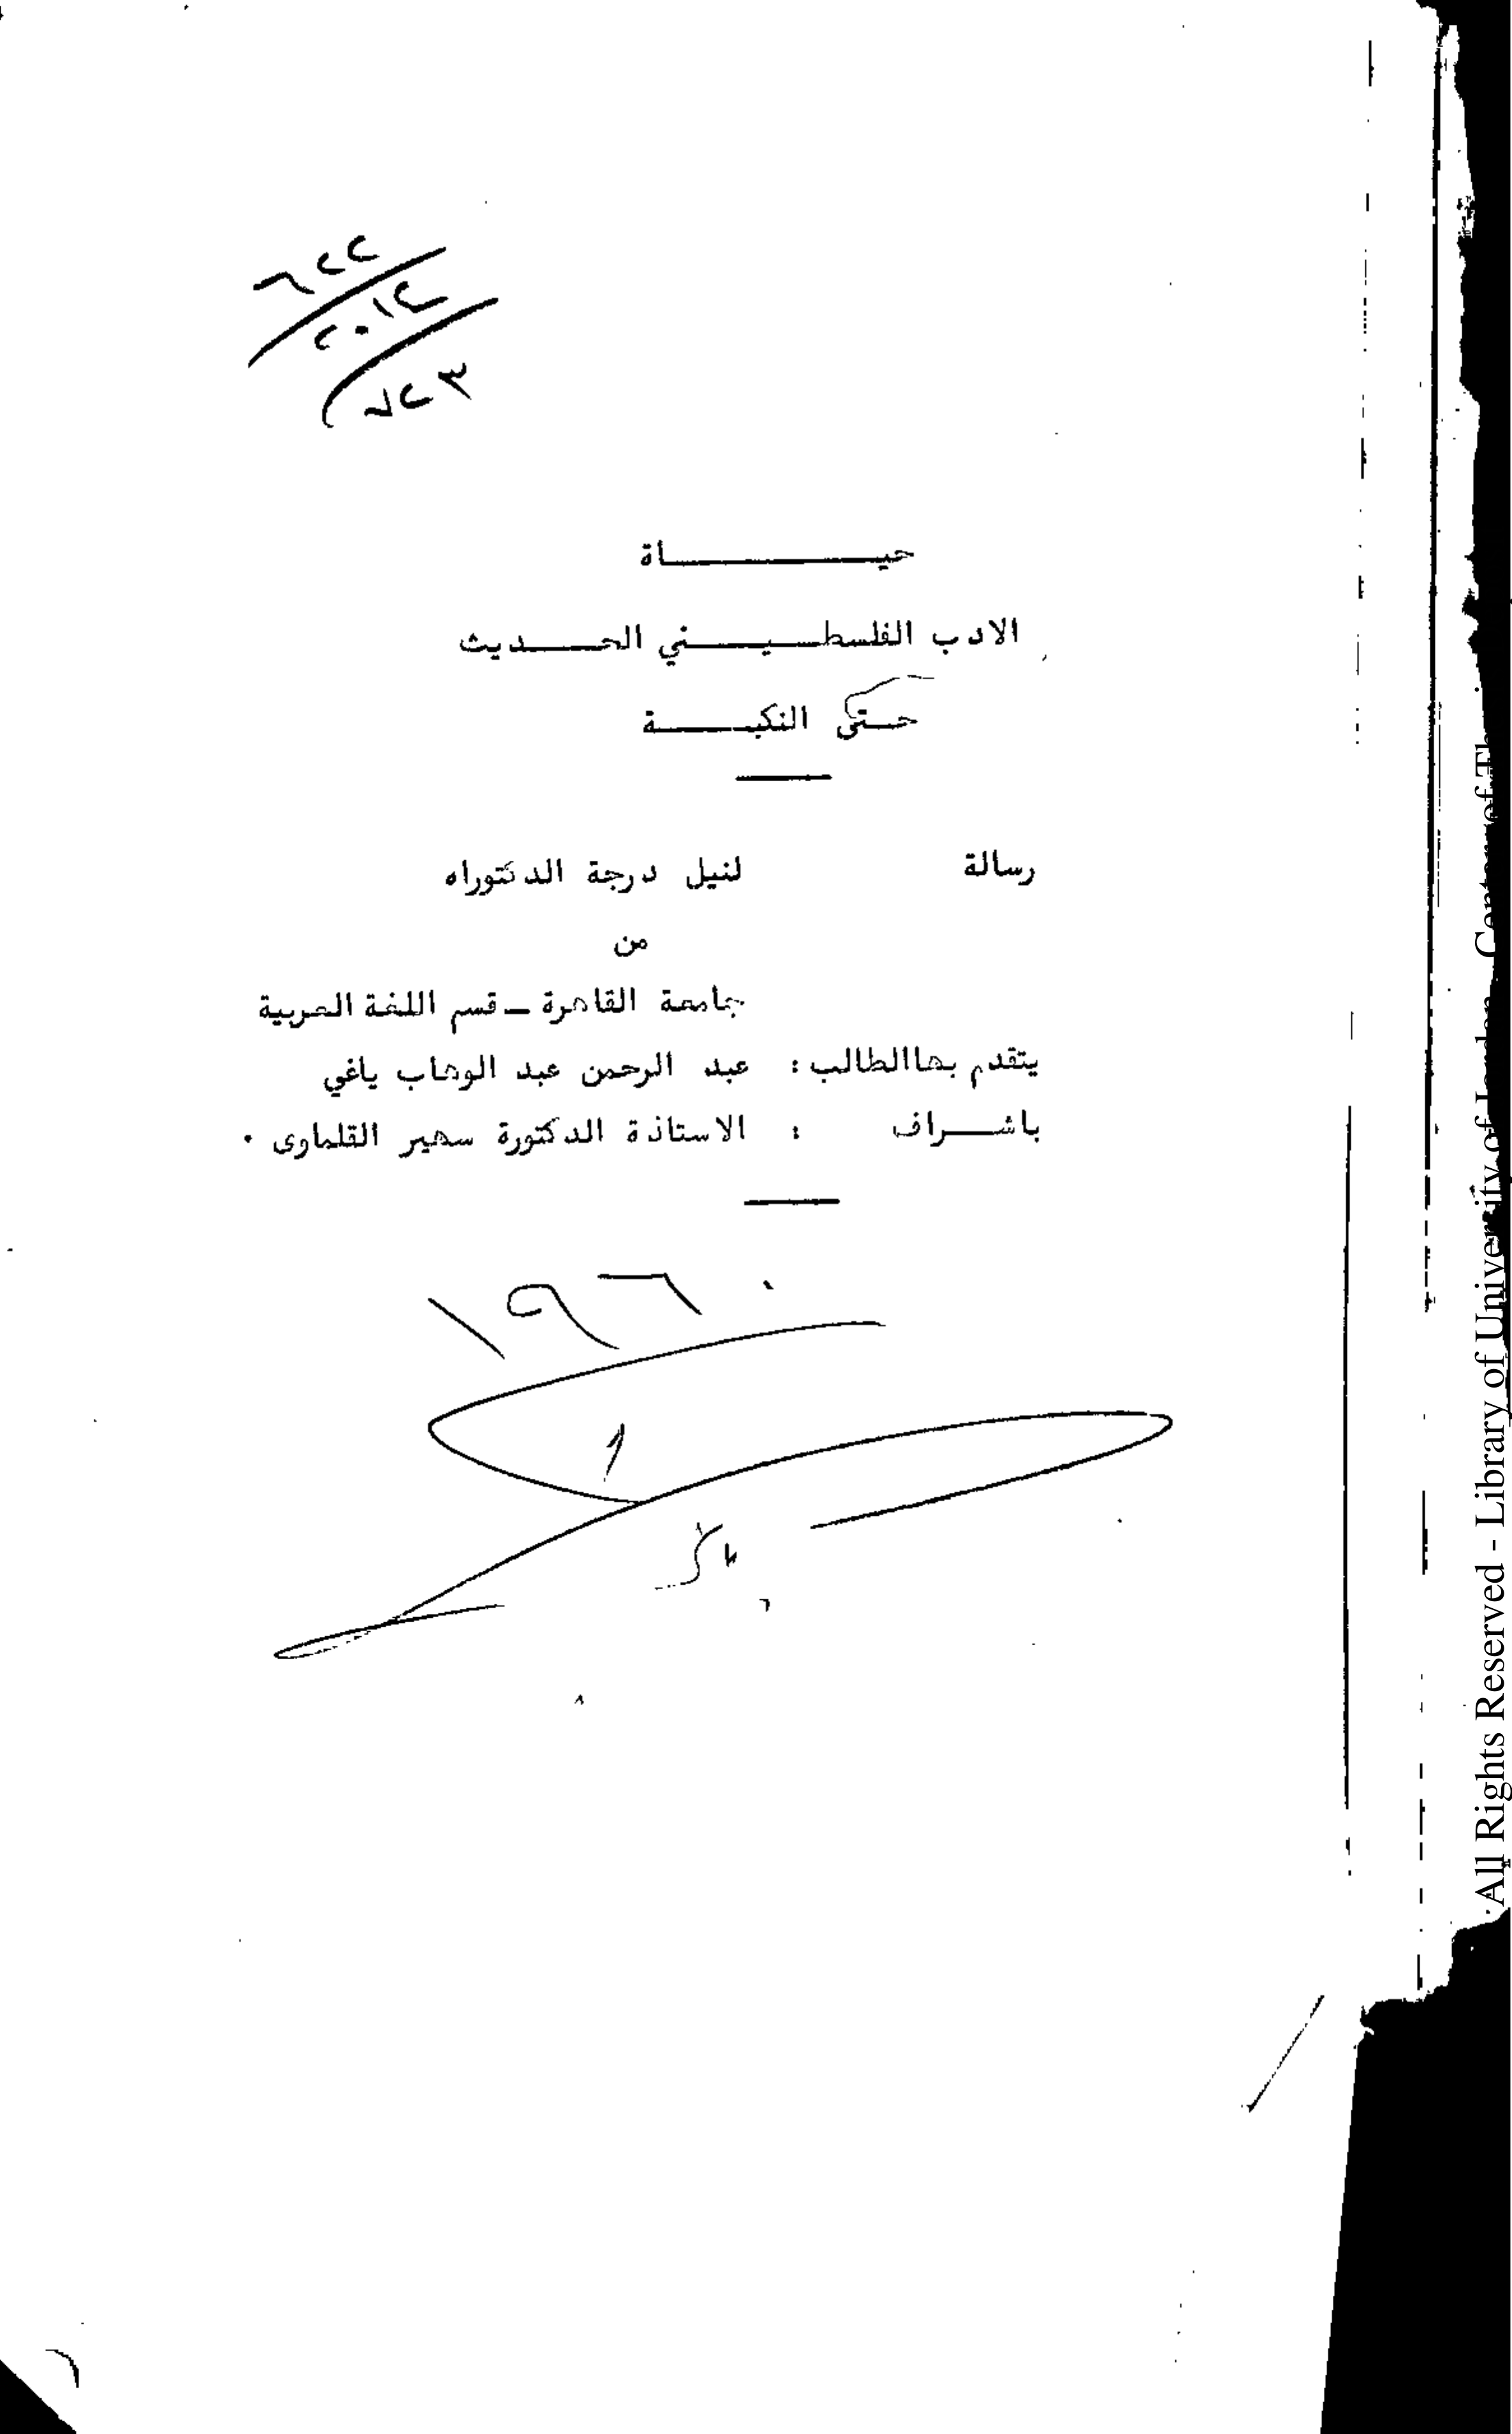 ٦٢٢
٢٠١٤
٧٢٣
حيـــــــاة
الادب الفلسطـــيـــني الحـــديث
حـتى النكبـــة
رسالة لنيل درجة الدكتوراه
من
جامعة القاهرة ــ قسم اللغة العربية
يتقدم بها الطالب : عبد الرحمن عبد الوهاب ياغي
باشـــراف : الاستاذة الدكتورة سهير القلماوى .
١٩٦٠
All Rights Reserved - Library of University of Jordan - Center of Th